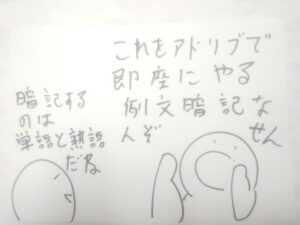 これをアドリブで
即座に やる
例文暗記な
んぞ せん
暗記する
のは
単語と熟語
だね